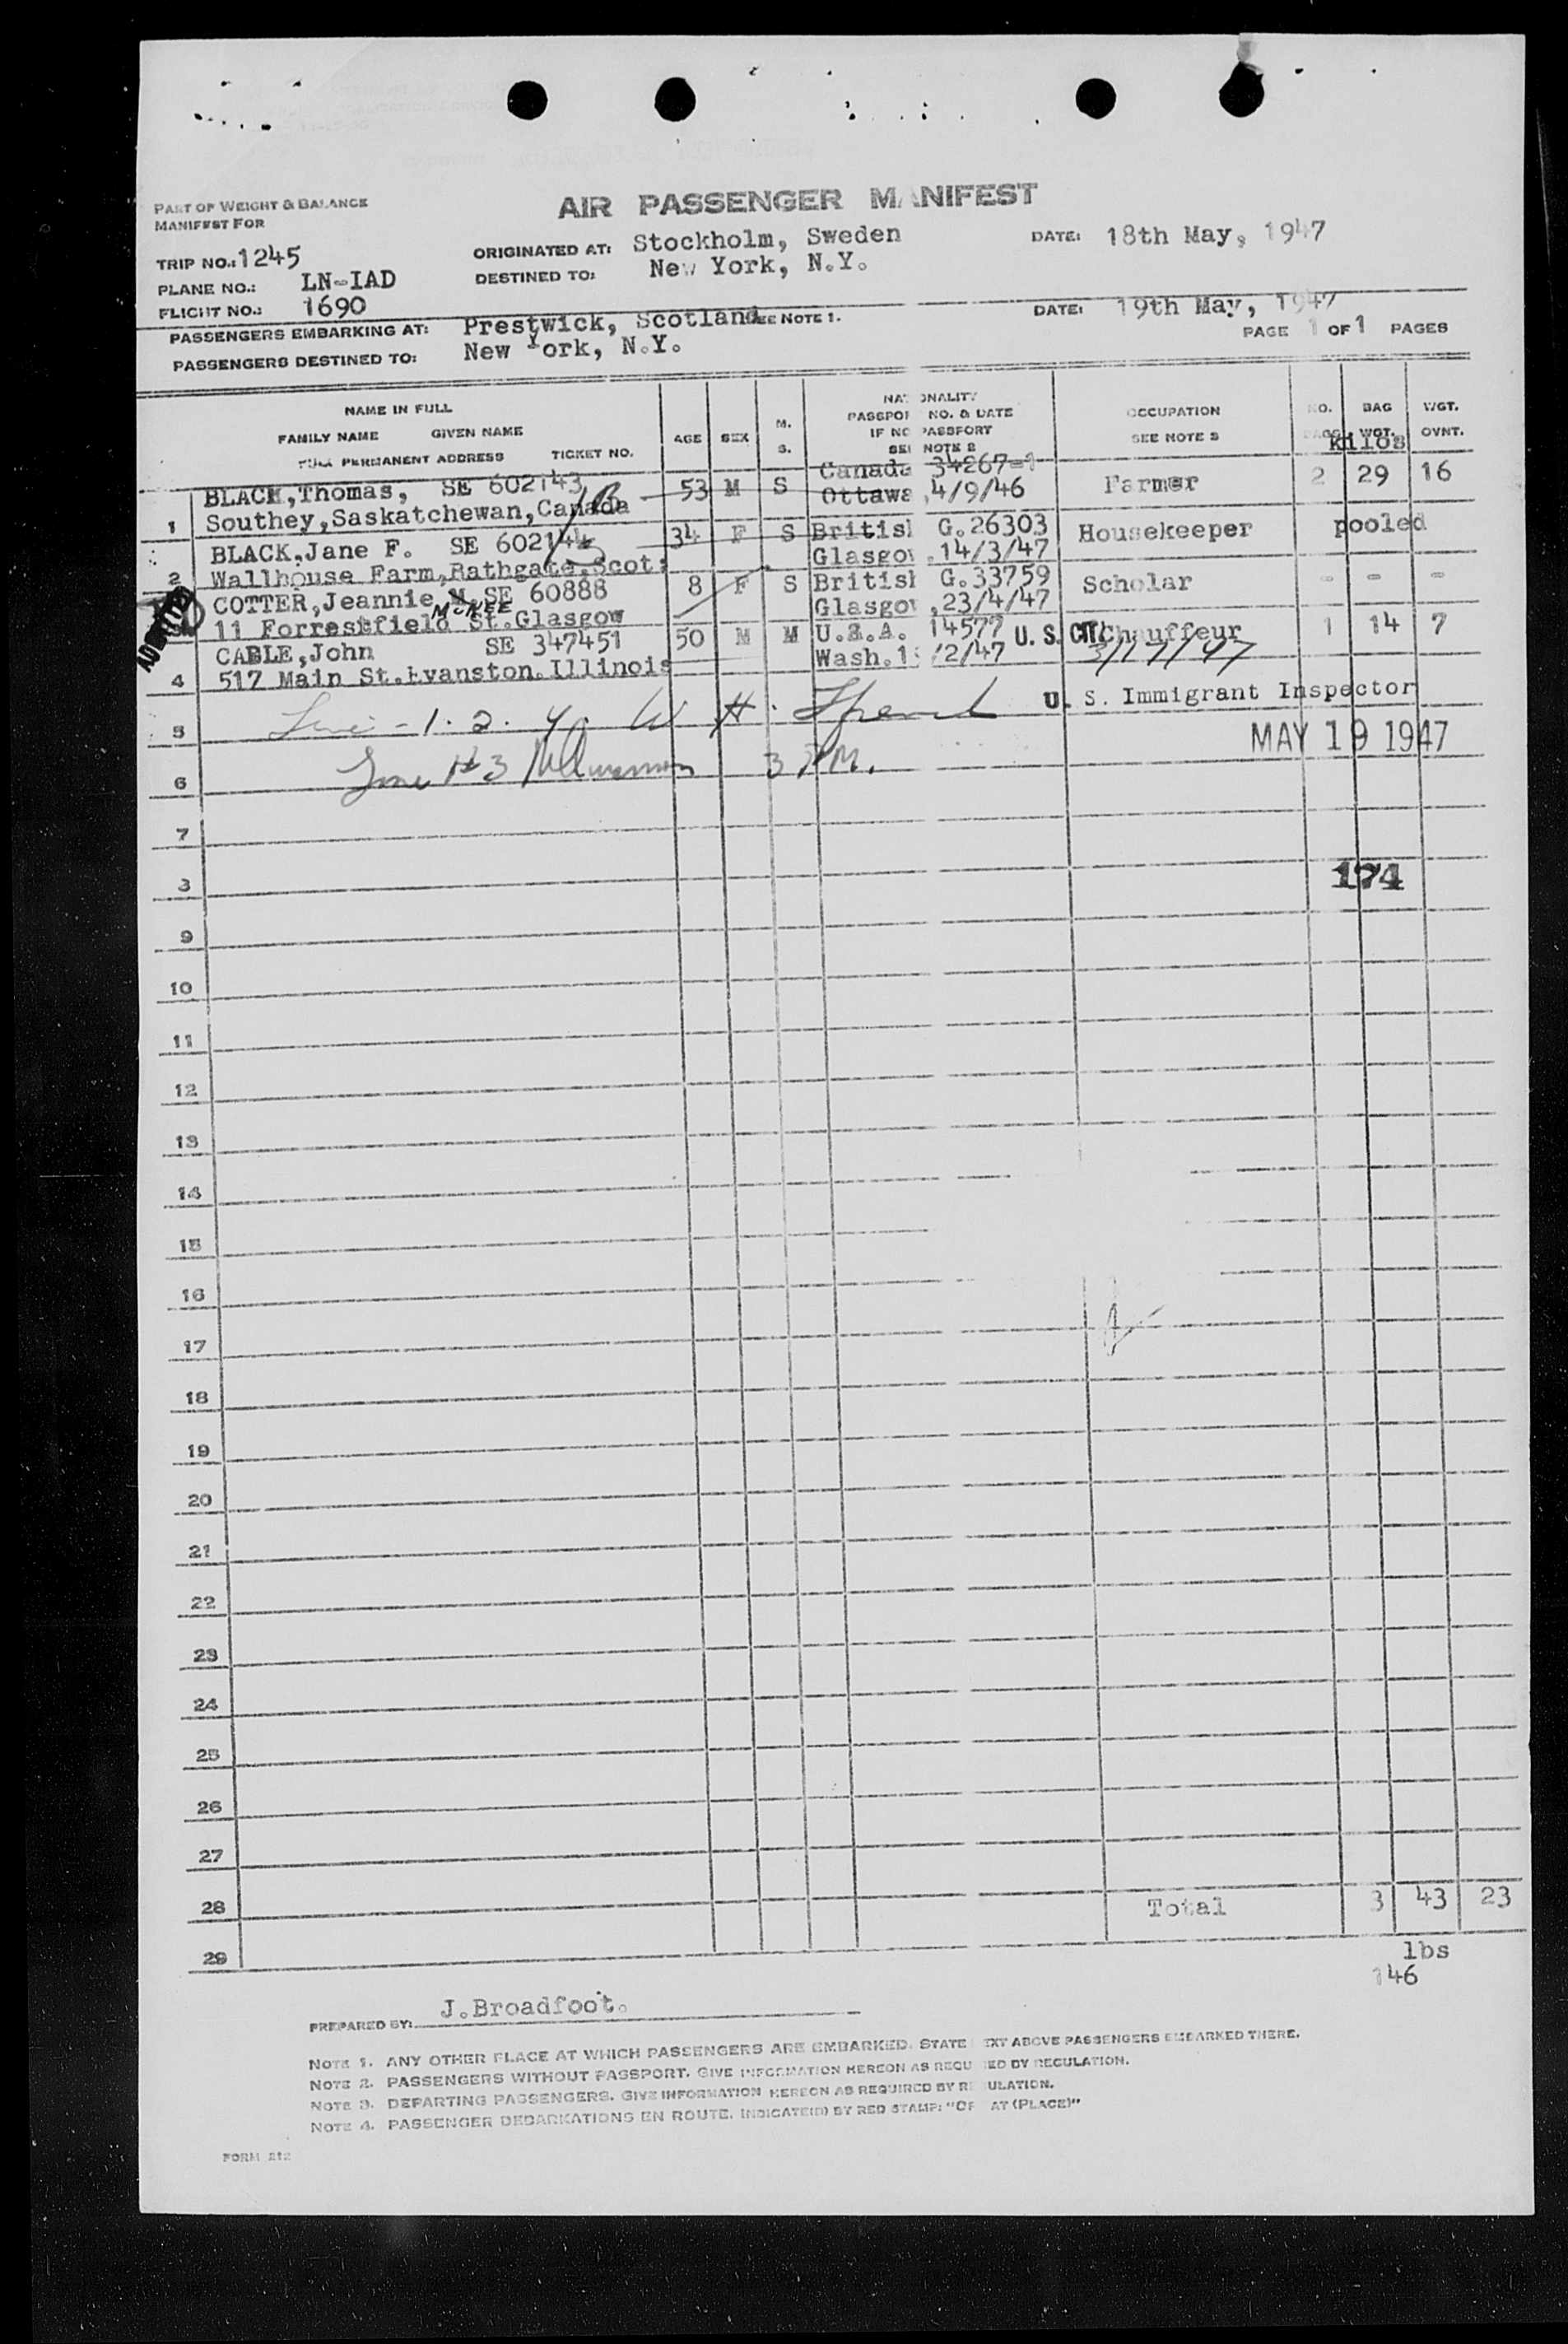 PART OF WEIGHT & BALANCE
MANIFEST FOR
AIR PASSENGER MANIFEST
TRIP NO.: 1245
ORIGINATED AT: Stockholm, Sweden DATE: 18th May, 1947
PLANE NO.: LN-IAD
DESTINED TO: New York, N.Y.
FLIGHT NO.: 1690
PASSENGERS EMBARKING AT: Prestwick, Scotland SEE NOTE 1. DATE: 19th May, 1947
PASSENGERS DESTINED TO: New York, N.Y. PAGE 1 OF 1 PAGES
NAME IN FULL
FAMILY NAME GIVEN NAME
FULL PERMANENT ADDRESS TICKET NO.
AGE SEX M. S.
NATIONALITY
PASSPORT NO. & DATE
IF NO PASSPORT
SEE NOTE 2
OCCUPATION
SEE NOTE 3
NO. BAG WGT.
BAGS WGT. OVNT.
Kilos
BLACK, Thomas, SE 602143 53 M S Canada 34267-1 Farmer 2 29 16
1 Southey, Saskatchewan, Canada Ottawa, 4/9/46
BLACK, Jane F. SE 602144 34 F S British G.26303 Housekeeper pooled
2 Wallhouse Farm, Bathgate, Scot. Glasgow, 14/3/47
ADMITTED
COTTER, Jeannie M. SE 60888 8 F S British G.33759 Scholar - - -
McKEE
3 11 Forrestfield St. Glasgow Glasgow, 23/4/47
CABLE, John SE 347451 50 M M U.S.A. 14577 U. S. CIT. Chauffeur 1 14 7
4 517 Main St. Evanston. Illinois Wash. /2/47 3/17/47
5 Line - 1. 2. 4. W. H. U. S. Immigrant Inspector
MAY 19 1947
6 Line # 3 3 P.M.
7
8
174
9
10
11
12
13
14
15
16
17
18
19
20
21
22
23
24
25
26
27
28 Total 3 43 23
29
lbs
146
PREPARED BY: J. Broadfoot.
NOTE 1. ANY OTHER PLACE AT WHICH PASSENGERS ARE EMBARKED. STATE TEXT ABOVE PASSENGERS EMBARKED THERE.
NOTE 2. PASSENGERS WITHOUT PASSPORT. GIVE INFORMATION HEREON AS REQUIRED BY REGULATION.
NOTE 3. DEPARTING PASSENGERS. GIVE INFORMATION HEREON AS REQUIRED BY REGULATION.
NOTE 4. PASSENGER DEBARKATIONS EN ROUTE. INDICATE(D) BY RED STAMP: "OFF AT (PLACE)"
FORM 212